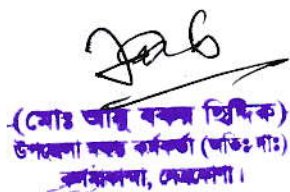 (মোঃ আবু বকর ছিদ্দিক)
উপজেলা মৎস্য কর্মকর্তা (অতিঃ দাঃ)
কলমাকান্দা, নেত্রকোণা।